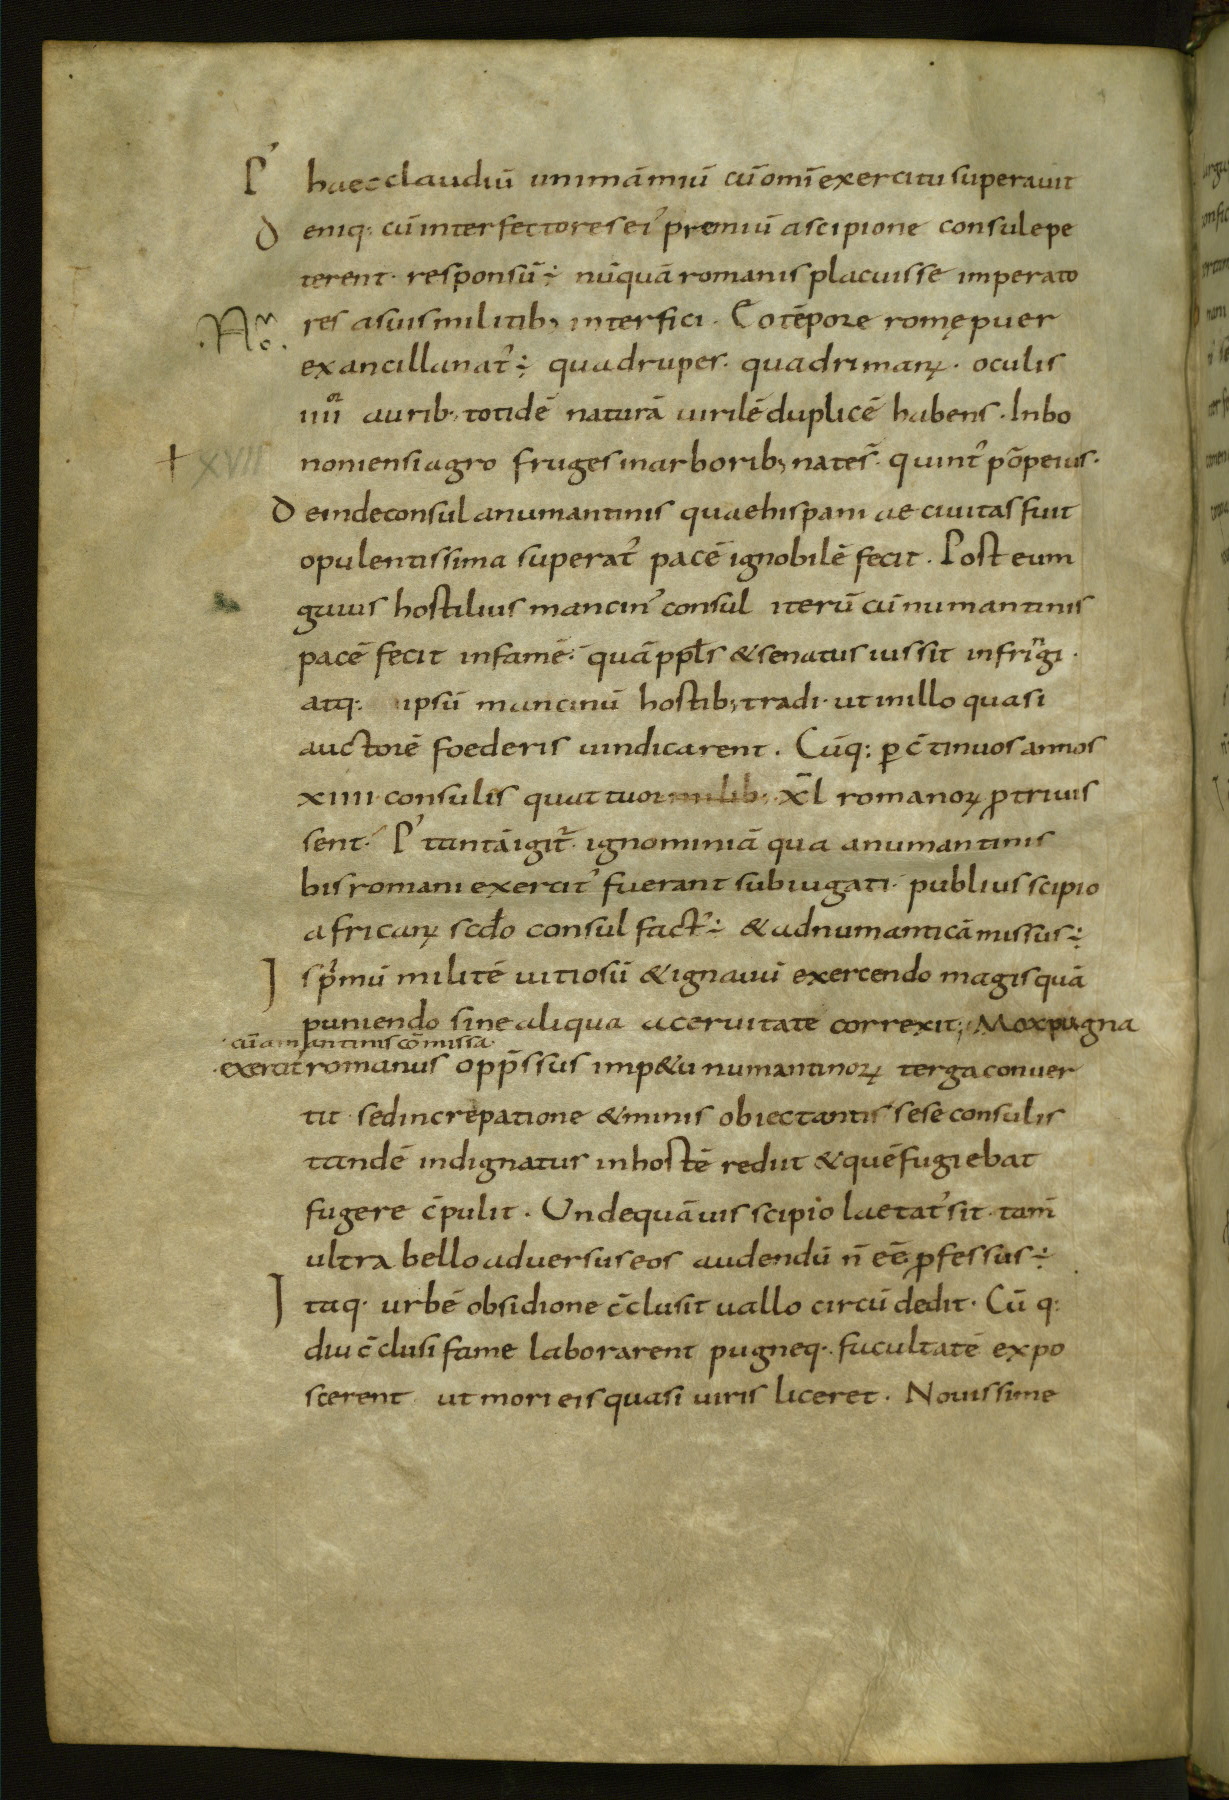 P' haec claudiū unimāmiū cū om̄i exercitu superauit
D eniq: cū interfectores ei' premiū a scipione consule pe
terent· responsū ÷ nūquā romanis placuisse imperato
res a suis militib; interfici. Eo tēpore romę puer
ex ancilla nat' ÷ quadrupes· quadrimanꝝ· oculis
iiii or aurib; totidē naturā uirilē duplicē habens· In bo
noniensi agro fruges in arborib; nates̄· quint' pōpeius·
XVII
D einde consul a numantinis quae hispaniae ciuitas fuit
opulentissima superat' pacē ignobilē fecit. Post eum
gaius hostilius mancin' consul iterū cū numantinis
pacē fecit infamē· quā ppl̄s & senatus iussit infrīgi·
atq: ipsū mancinū hostib; tradi· ut in illo quasi
auctorē foederis uindicarent. Cūq: ꝑ c̄tinuos annos
xiiii· consulis quattuor milib; x̄l romanoꝝ ꝓtriuis
sent· P' tantā igit̄· ignominiā qua a numantinis
bis romani exercit' fuerant subiugati· publius scipio
africanꝝ scd̄o consul fact' ÷ & ad numanticā missus ÷
I s p'mū militē uitiosū & ignauū exercendo magis quā
puniendo sine aliqua aceruitate correxit; Mox pugna
cū a mantinis cōmissa·
·exercit' romanus opp̄ssus imp&u numantinoꝝ terga conuer
tit· sed increpatione & minis obiectantis sese consulis
tandē indignatus in hostē rediit & quē fugiebat
fugere c̄pulit. Unde quāuis scipio laetat' sit· tam̄
ultra bello aduersus eos audendū n̄ eē ꝓfessus ÷
I taq· urbē obsidione c̄clusit uallo circūdedit. Cū q:
diu c̄clusi fame laborarent pugneq· facultatē expo
scerent ut mori eis quasi uiris liceret. Nouissime